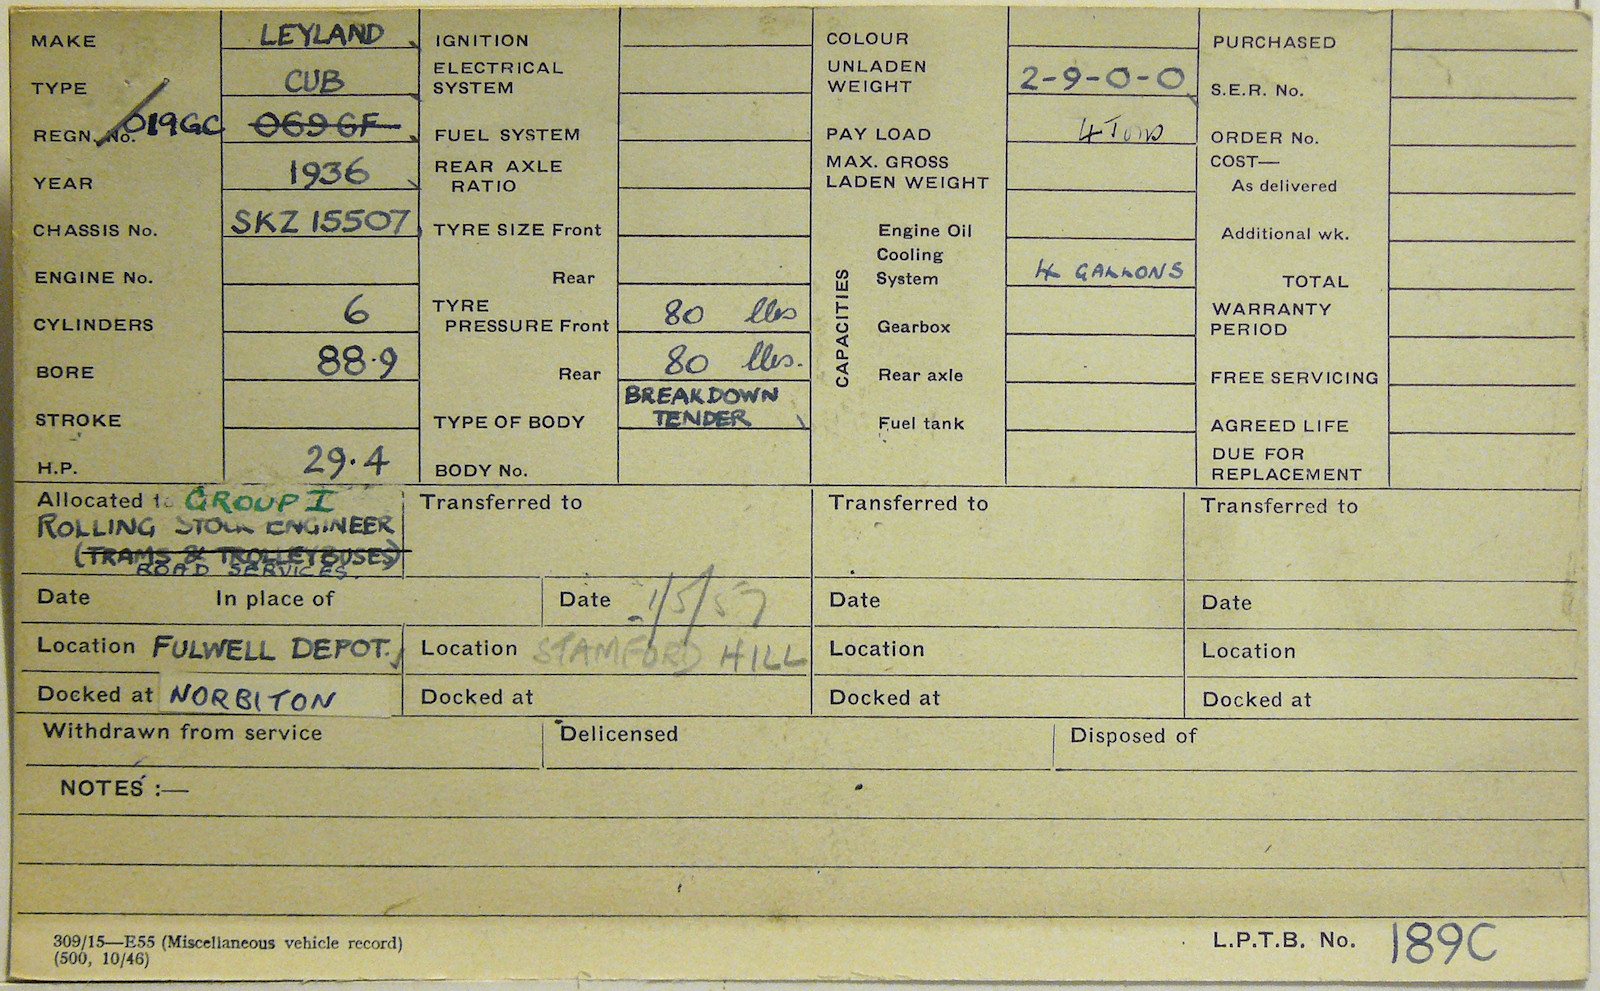 MAKE LEYLAND
TYPE CUB
REGN. No. 019GC 069GF
YEAR 1936
CHASSIS No. SKZ 15507
ENGINE No.
CYLINDERS 6
BORE 88·9
STROKE
H.P. 29·4
IGNITION
ELECTRICAL
SYSTEM
FUEL SYSTEM
REAR AXLE
RATIO
TYRE SIZE Front
Rear
TYRE
PRESSURE Front 80 lbs
Rear 80 lbs.
TYPE OF BODY BREAKDOWN
TENDER
BODY No.
COLOUR
UNLADEN
WEIGHT 2-9-0-0
PAY LOAD 4 Tons
MAX. GROSS
LADEN WEIGHT
CAPACITIES
Engine Oil
Cooling
System 4 GALLONS
Gearbox
Rear axle
Fuel tank
PURCHASED
S.E.R. No.
ORDER No.
COST—
As delivered
Additional wk.
TOTAL
WARRANTY
PERIOD
FREE SERVICING
AGREED LIFE
DUE FOR
REPLACEMENT
Allocated to GROUP I
ROLLING STOCK ENGINEER
(TRAMS & TROLLEYBUSES)
ROAD SERVICES.
Transferred to
Transferred to
Transferred to
Date In place of
Date 1/5/57
Date
Date
Location FULWELL DEPOT.
Location STAMFORD HILL
Location
Location
Docked at NORBITON
Docked at
Docked at
Docked at
Withdrawn from service
Delicensed
Disposed of
NOTES :—
309/15—E55 (Miscellaneous vehicle record)
(500, 10/46)
L.P.T.B. No. 189C